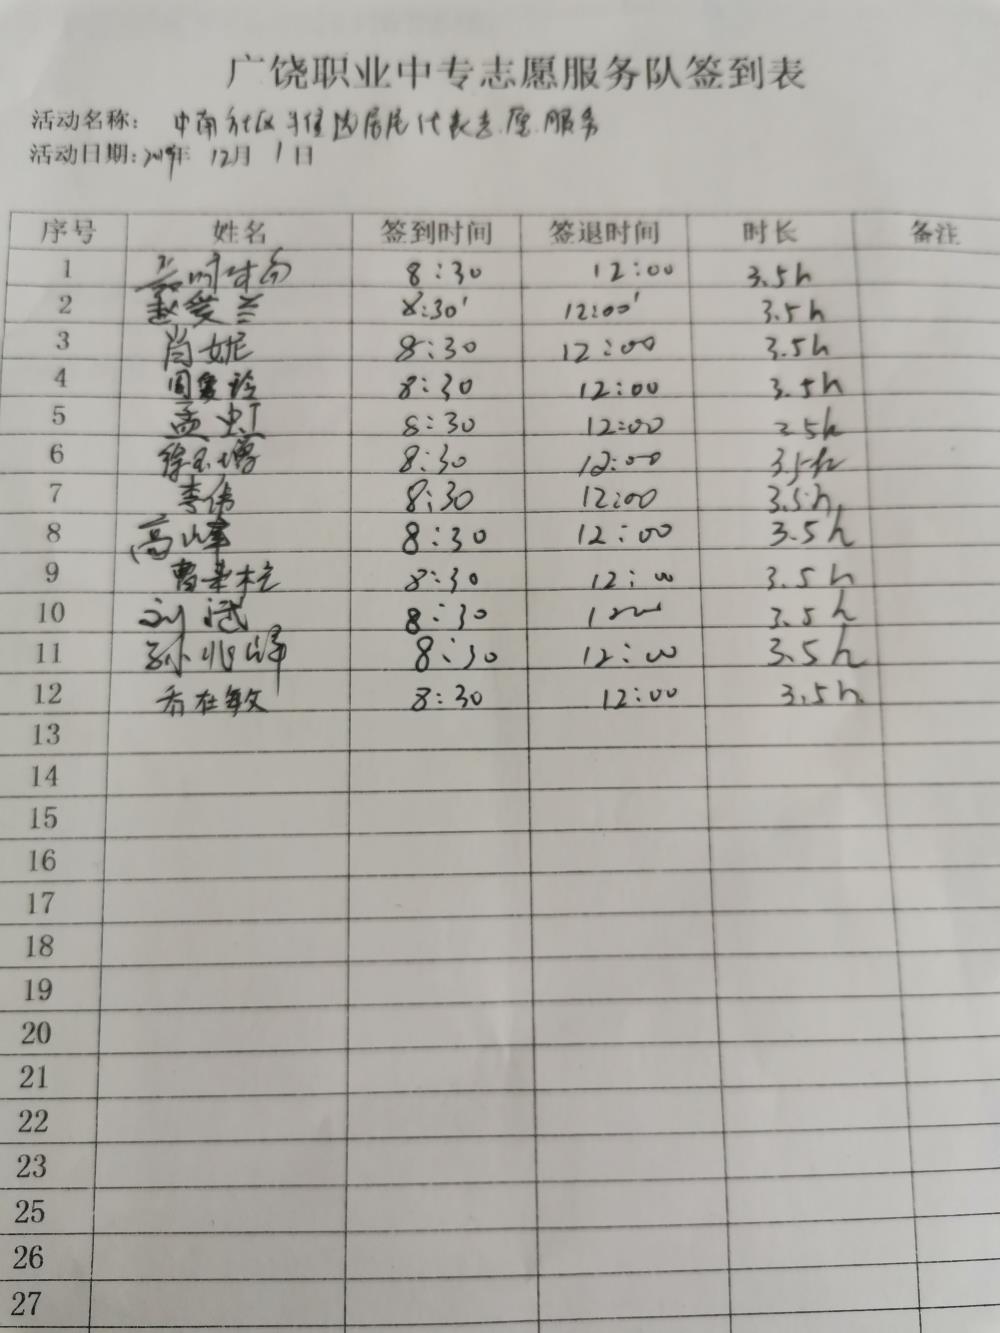 广饶职业中专志愿服务队签到表
活动名称: 中南社区 居民代表志愿服务
活动日期: 2019年 12月 1日
序号 姓名 签到时间 签退时间 时长 备注
1 8:30 12:00 3.5h
2 赵爱兰 8:30' 12:00' 3.5h
3 肖妮 8:30 12:00 3.5h
4 周爱玲 8:30 12:00 3.5h
5 孟虹 8:30 12:00 3.5h
6 徐 8:30 12:00 3.5h
7 李伟 8:30 12:00 3.5h
8 高峰 8:30 12:00 3.5h
9 曹 8:30 12:00 3.5h
10 刘斌 8:30 1200 3.5h
11 孙兆峰 8:30 12:00 3.5h
12 乔在敏 8:30 12:00 3.5h
13
14
15
16
17
18
19
20
21
22
23
25
26
27